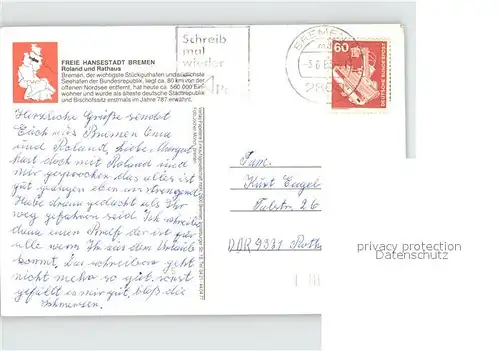 FREIE HANSESTADT BREMEN
Roland und Rathaus
Bremen, der wichtigste Stückguthafen und südlichste
Seehafen der Bundesrepublik, liegt ca. 80 km von der
offenen Nordsee entfernt, hat heute ca. 560 000 Ein-
wohner und wurde als älteste deutsche Stadtrepublik
und Bischofssitz erstmals im Jahre 787 erwähnt.
Schreib
mal
wieder
BREMEN
60
DEUTSCHE BUNDESPOST
Herzliche Grüße sendet
Euch aus Bremen Oma
und Roland, liebe Margot
hast doch mit Roland und
mir gesprochen das alles ist
gut gegangen eben anstrengend
Habe dran gedacht als Ihr
weg gefahren seid Ich schreibe
dann einen Brief der ist für
alle wenn Ihr aus dem Urlaub
kommt. Das schreiben geht
nicht mehr so gut. sonst
gefällt es mir gut. bloß die
Schmerzen.
Fam.
Kurt Engel
Talstr 26
DDR 9331
privacy protection
Datenschutz